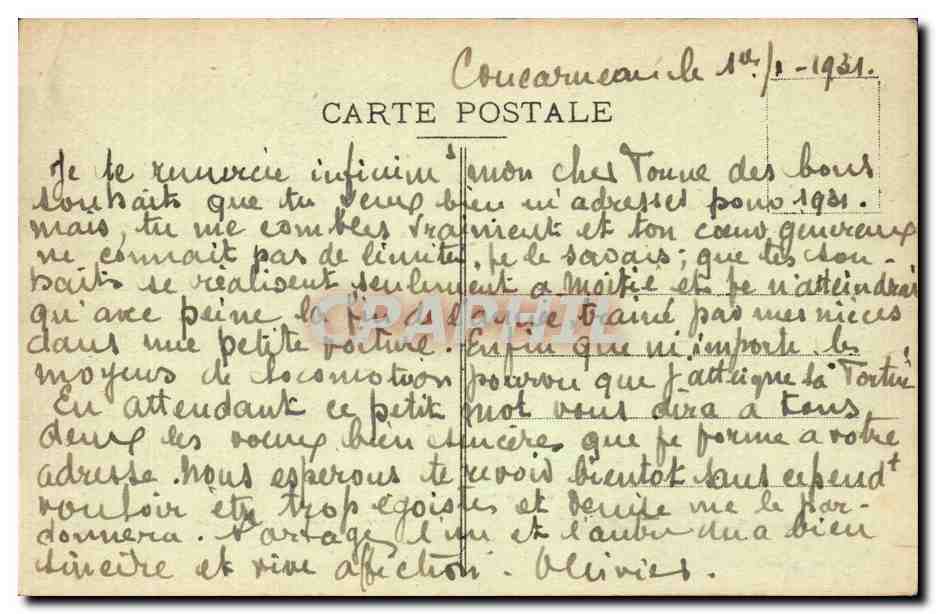 Concarneau le 1er/1-1931.
CARTE POSTALE
Je te remercie infinimt mon cher Tonne des bons
souhaits que tu veux bien m'adresser pour 1931.
mais, tu me combles vraiment et ton cœur généreux
ne connait pas de limites, je le savais; que tes sou-
haits se réalisent seulement a moitié et je n'atteindrai
qu'avec peine la fin de l'année trainé par mes nièces
dans une petite voiture. Enfin que m'importe les
moyens de locomotion pourvu que j'atteigne la
En attendant ce petit mot vous dira a tous
deux les vœux bien sincères que je forme a votre
adresse. Nous esperons te revoir bientot sans cependt
vouloir être trop égoistes et me le par-
donnera. Partagez l'un et l'autre ma bien
sincère et vive affection. Olivier.
CPAPHIL